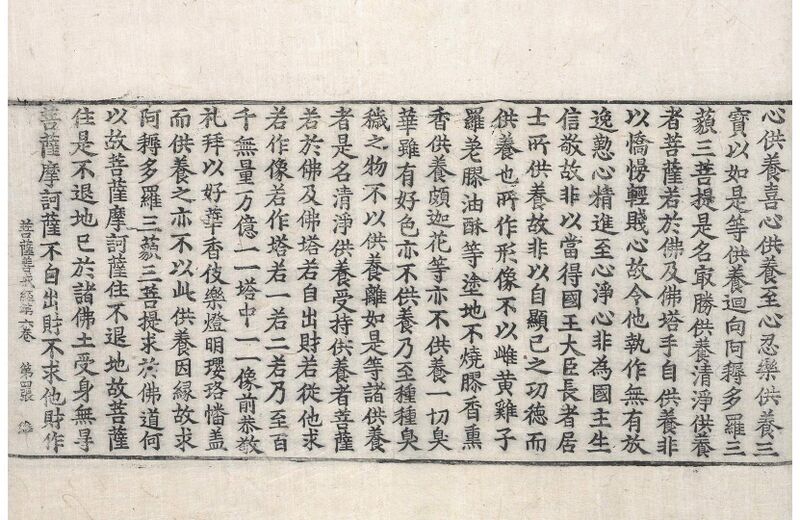 心供養喜心供養至心忍樂供養三
寳以如是等供養迴向阿耨多羅三
藐三菩提是名冣勝供養清淨供養
者菩薩若於佛及佛塔手自供養非
以憍愣輕賤心故令他執作無有放
逸懃心精進至心淨心非為國主生
信敬故非以當得國王大臣長者居
士所供養故非以自顯已之功徳而
供養也所作形像不以雌黄雞子
羅差膠油酥等塗地不燒膠香熏
香供養頗迦花等亦不供養一切臭
華雖有好色亦不供養乃至種種臭
穢之物不以供養離如是等諸供養
者是名清淨供養受持供養者菩薩
若於佛及佛塔若自出財若從他求
若作像若作塔若一若二若乃至百
千無量万億一一塔中一一像前恭敬
礼拜以好華香伎樂燈明瓔珞幡盖
而供養之亦不以此供養因縁故求
阿耨多羅三藐三菩提求於佛道何
以故菩薩摩訶薩住不退地故菩薩
住是不退地已於諸佛土受身無㝵
菩薩摩訶薩不自出財不求他財作
菩薩善戒經第六卷 第四張